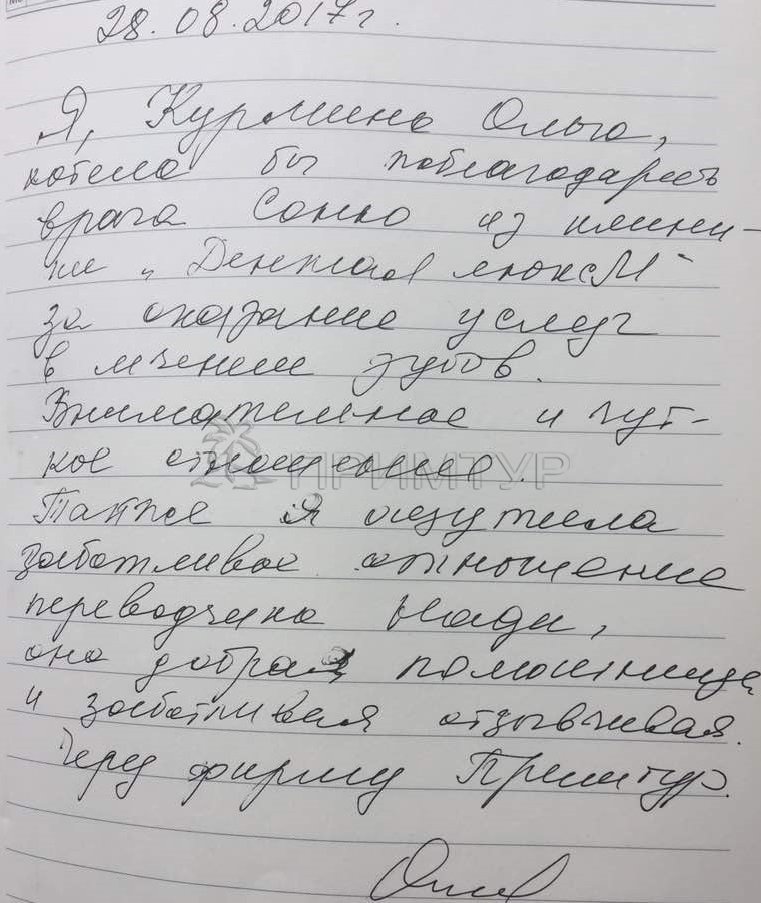 28.08.2017г.
Я, Курмина Ольга,
хотела бы поблагодарить
врача Сонхо из клини-
ки "Дентал люксМ"
за оказание услуг
в лечении зубов.
Внимательное и чут-
кое отношение.
ПРИМТУР
Также я ощутила
заботливое отношение
переводчика Нади,
она добрая помощница
и заботливая отзывчивая.
Через фирму Примтур.